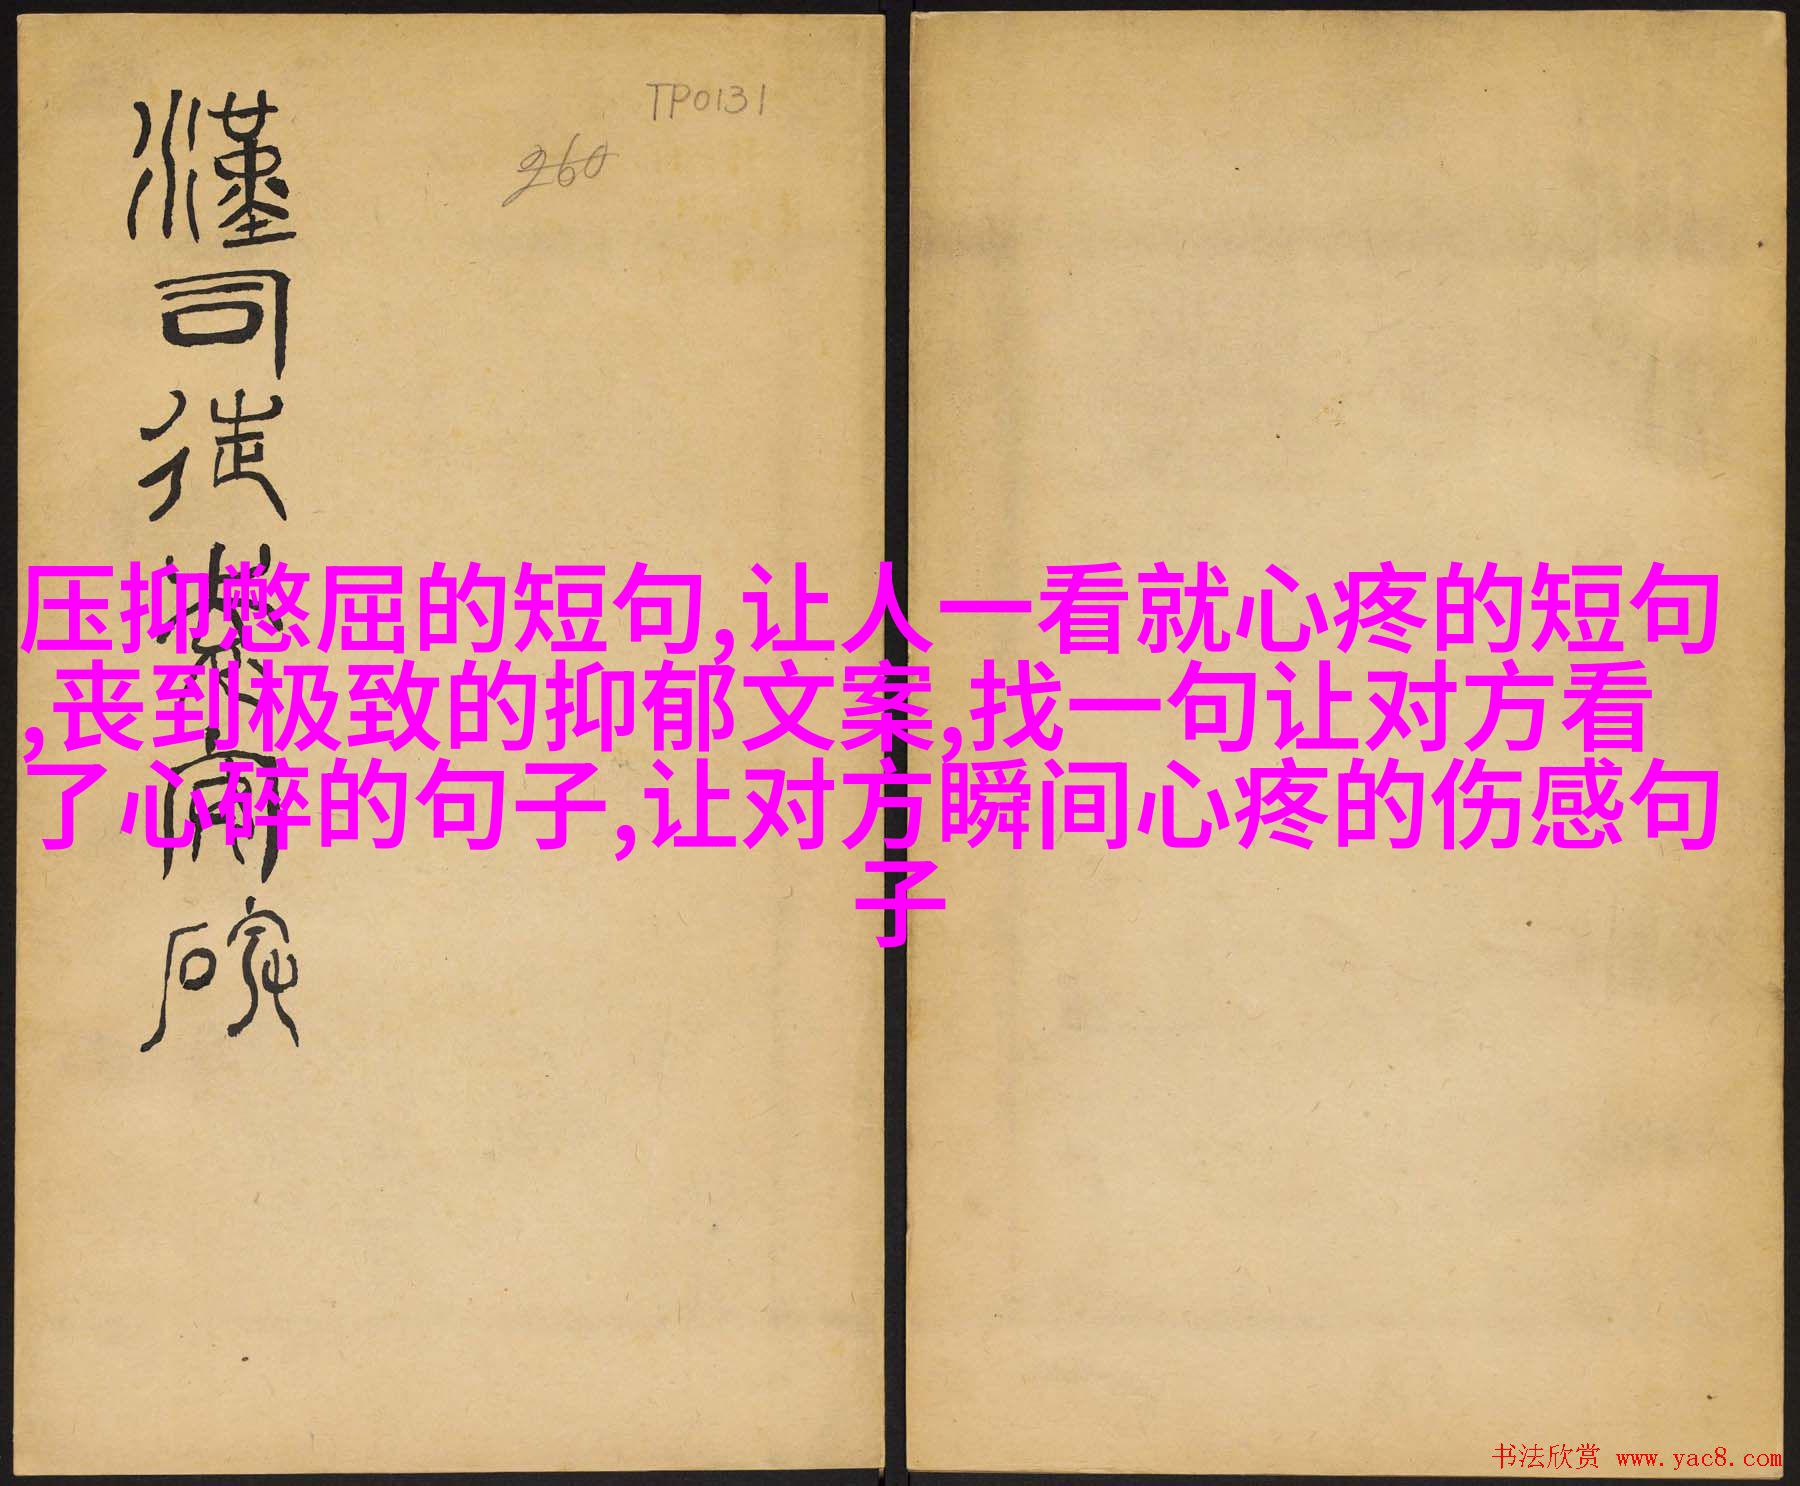 TP0131
260
漢司徒
压抑憋屈的短句,让人一看就心疼的短句
,丧到极致的抑郁文案,找一句让对方看
了心碎的句子,让对方瞬间心疼的伤感句
子
书法欣赏 www.yac8.com